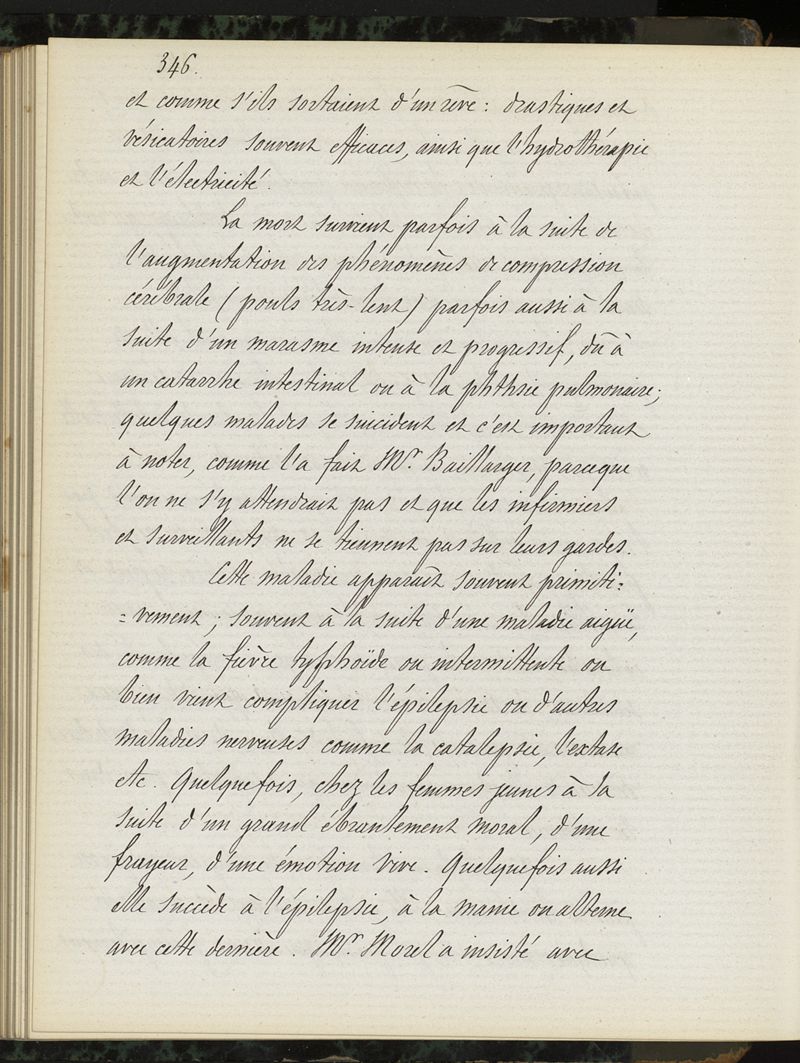 346.
et comme s'ils sortaient d'un rêve : drastiques et
vésicatoires souvent efficaces, ainsi que l'hydrothérapie
et l'électricité.
La mort survient parfois à la suite de
l'augmentation des phénomènes de compression
cérébrale (pouls très-lent) parfois aussi à la
suite d'un marasme intense et progressif, dû à
un catarrhe intestinal ou à la phthsie pulmonaire;
quelques malades se suicident et c'est important
à noter, comme l'a fait Mr. Baillarger, parceque
l'on ne s'y attendrait pas et que les infirmiers
et surveillants ne se tiennent pas sur leurs gardes.
Cette maladie apparaît souvent primiti=
=vement ; souvent à la suite d'une maladie aigüe,
comme la fièvre typhoïde ou intermittente ou
bien vient compliquer l'épilepsie ou d'autres
maladies nerveuses comme la catalepsie, l'extase
etc. Quelquefois, chez les femmes jeunes à la
suite d'un grand ébranlement moral, d'une
frayeur, d'une émotion vive. Quelquefois aussi
elle succède à l'épilepsie, à la manie ou alterne
avec cette dernière. Mr. Morel a insisté avec